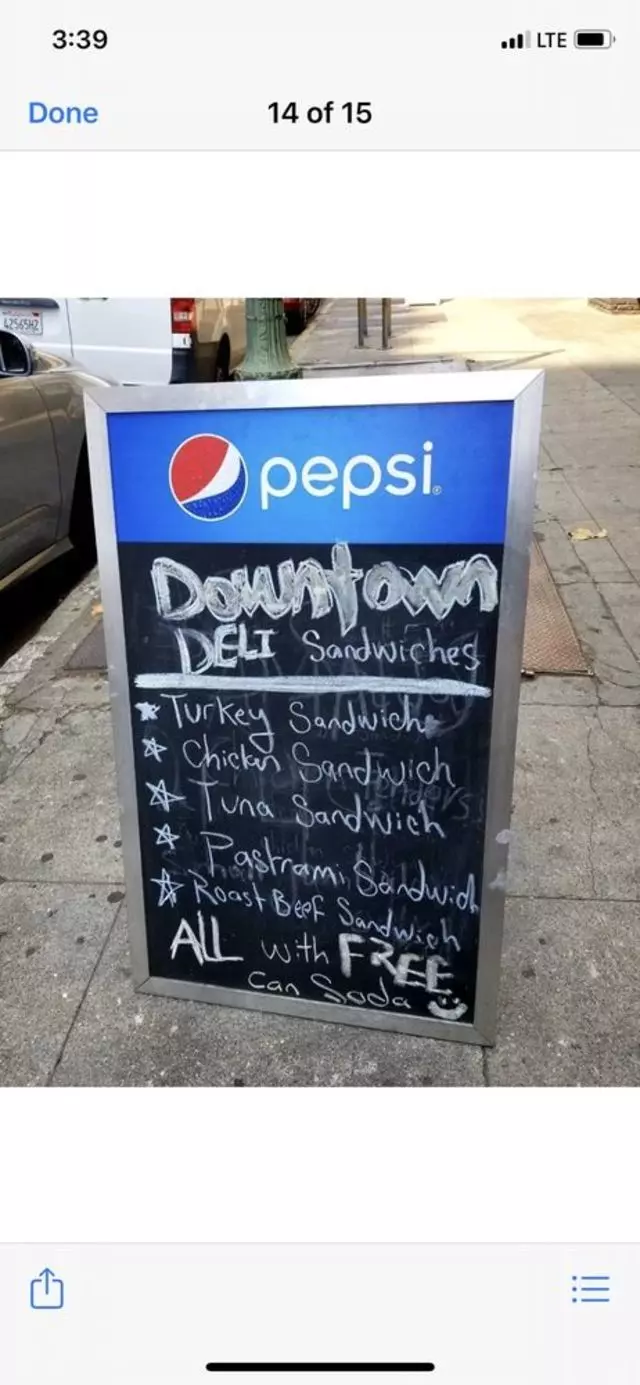 3:39 LTE
Done 14 of 15
42565H2
pepsi
Downtown
DELI Sandwiches
Turkey Sandwich
Chicken Sandwich
Tuna Sandwich
Pastrami Sandwich
Roast Beef Sandwich
ALL with FREE
Can Soda